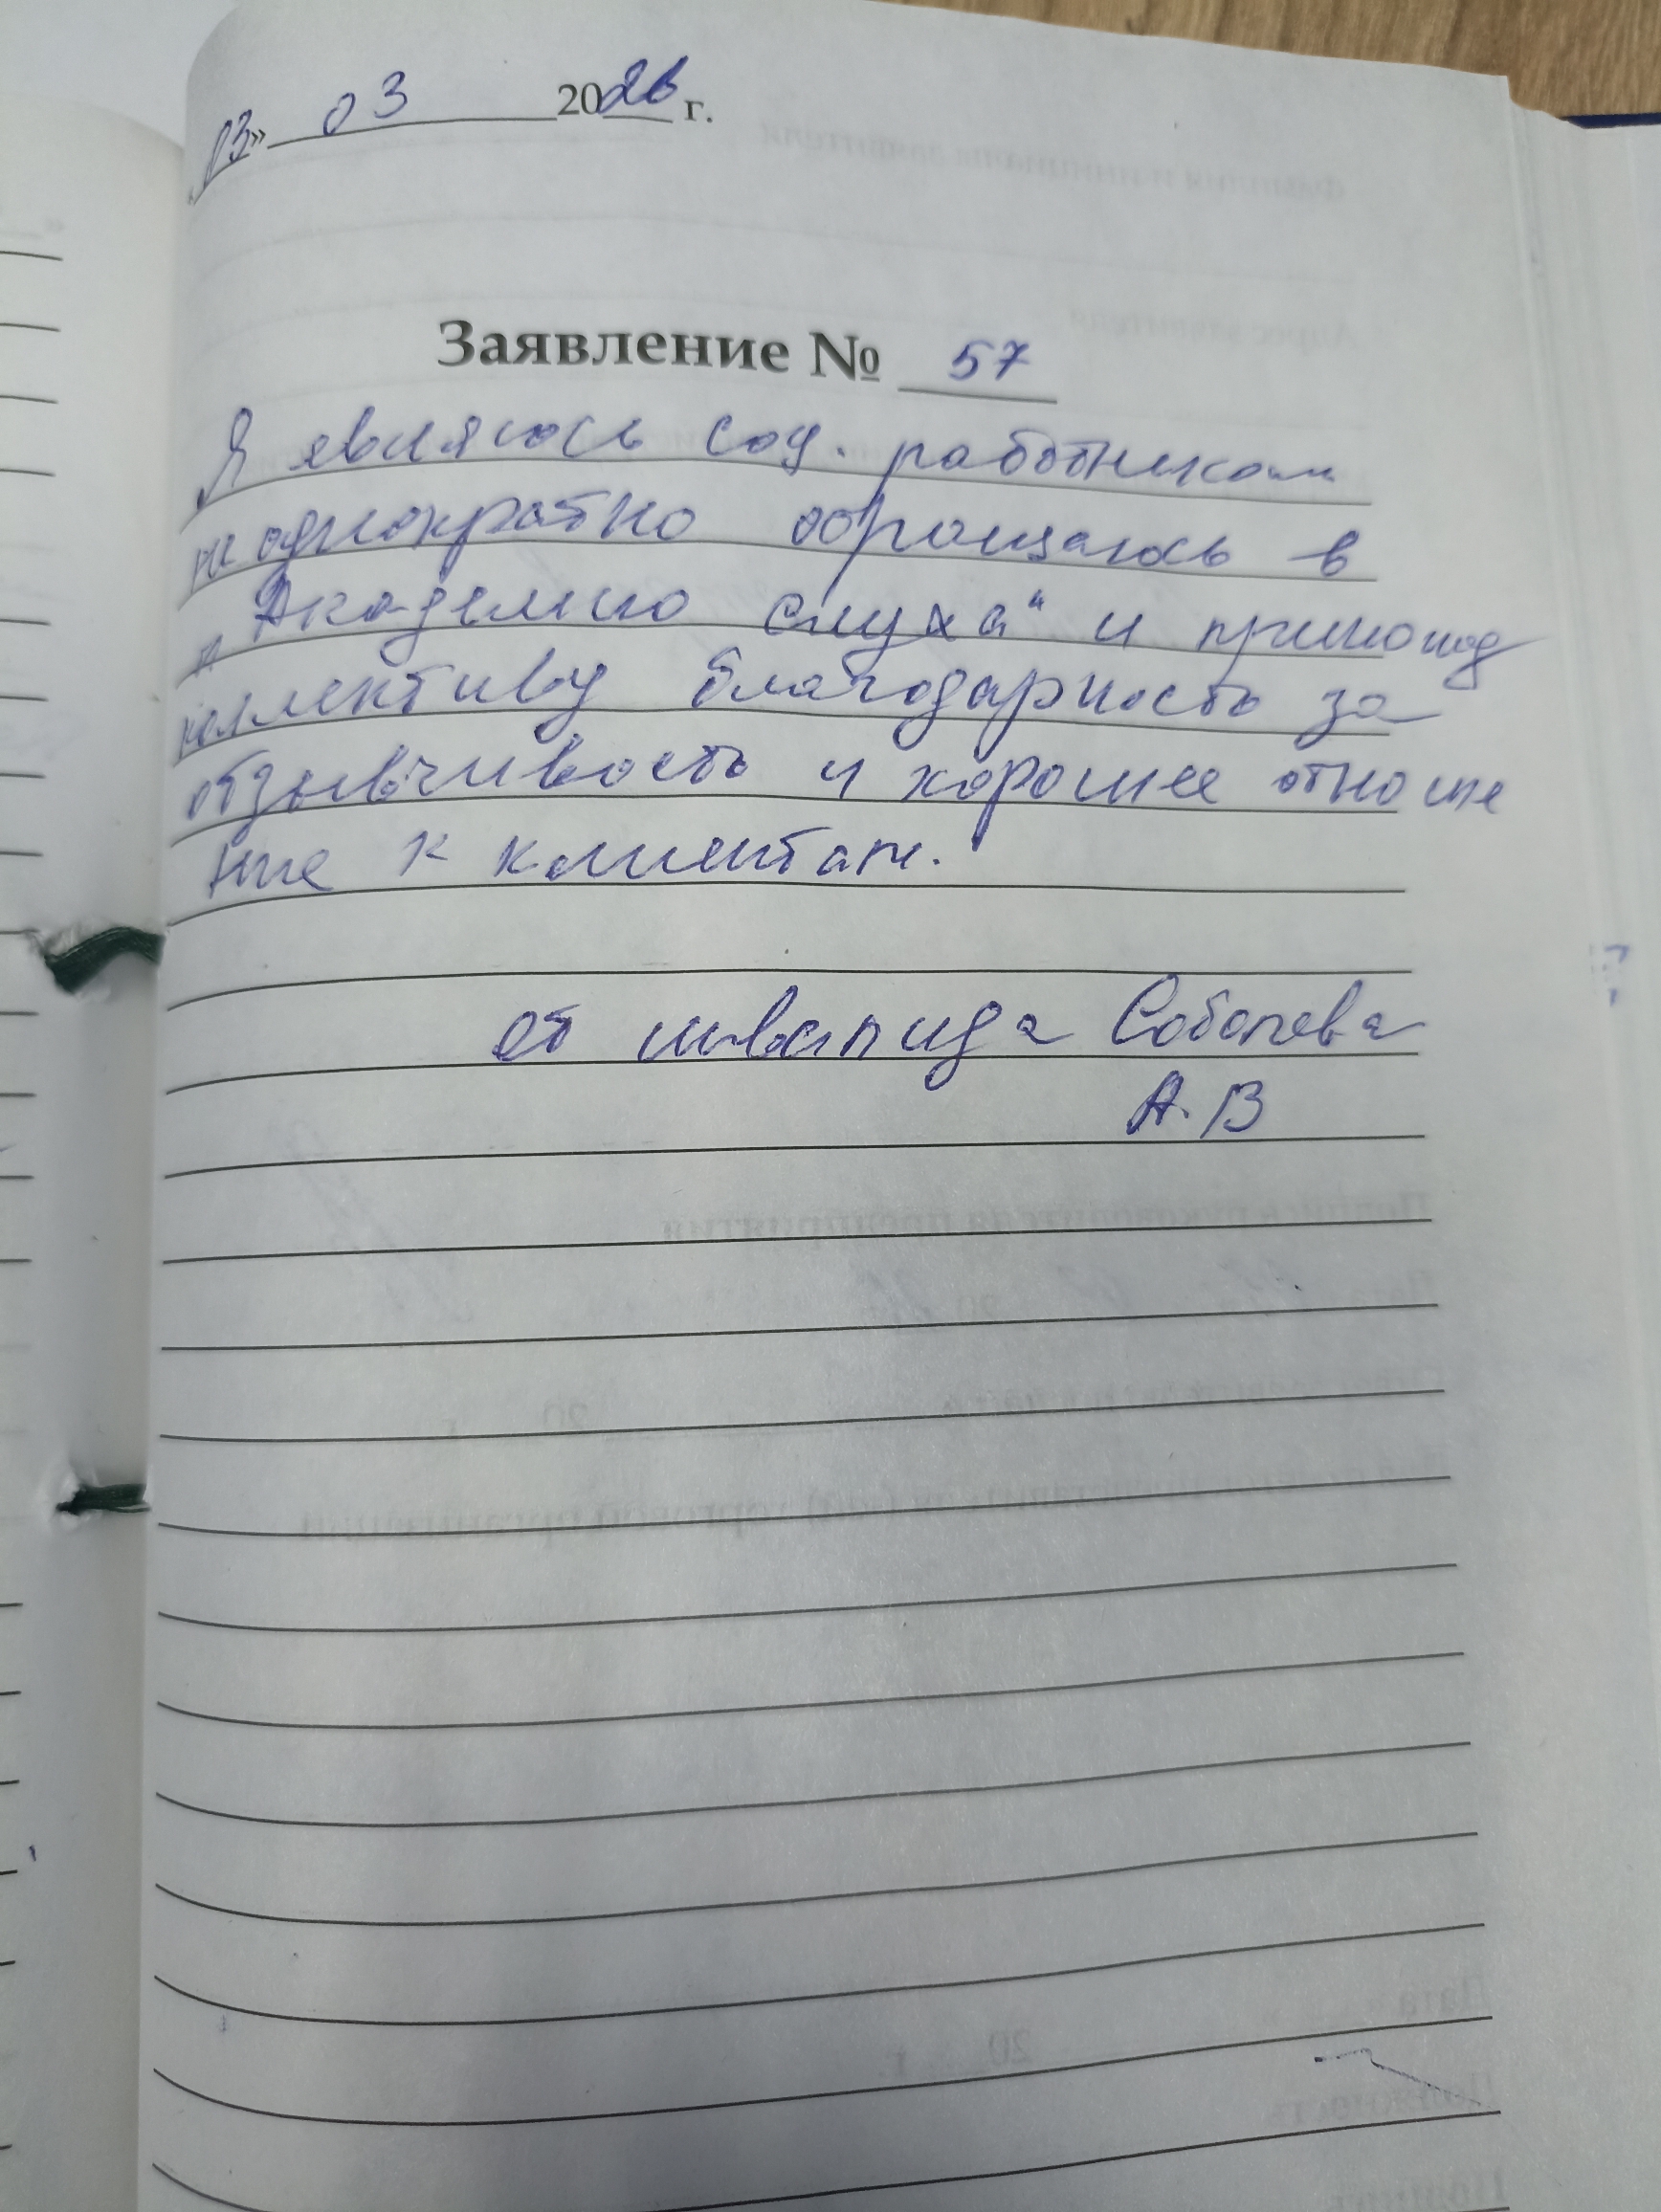 03» 03 2026 г.
Заявление № 57
Я являюсь соц. работником
неоднократно обращаюсь в
„Академию слуха“ и приношу
коллективу благодарность за
отзывчивость и хорошее отноше
ние к клиентам.
от инвалида Соболева
А.В